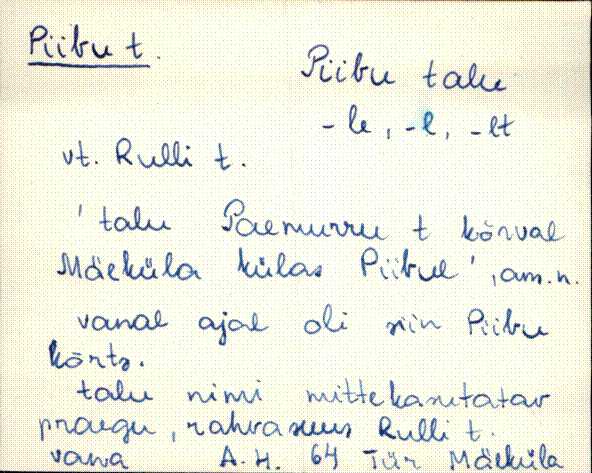 Piibu t.
Piibu talu
-le, -l, -lt
vt. Rulli t.
'talu Paemurru t kõrval
Mäeküla külas Piibul', am.n.
vanal ajal oli siin Piibu
kõrts.
talu nimi mittekasutatav
praegu, rahvasuus Rulli t.
vana A.H. 64 Tür Mäeküla